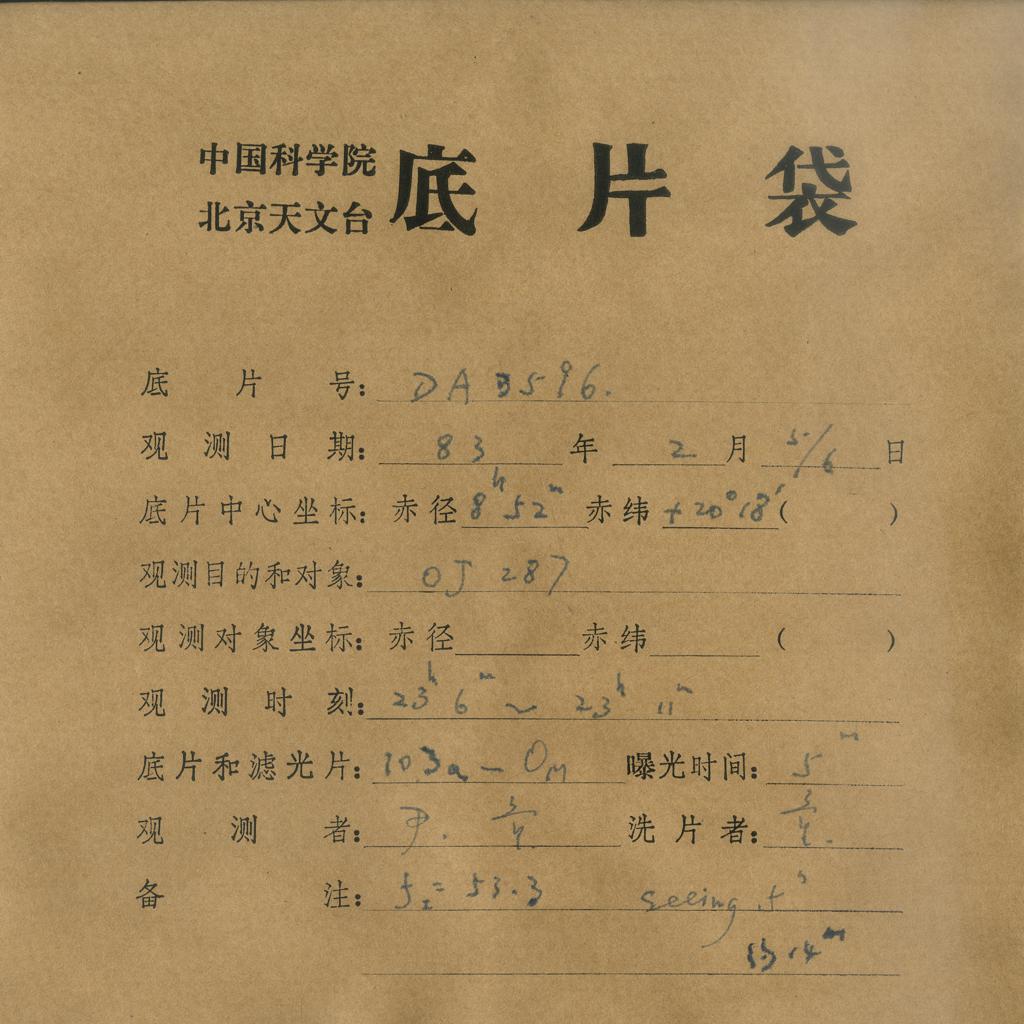 中国科学院
北京天文台
底片袋
底片号: DA 3596.
观测日期: 83 年 2 月 5/6 日
底片中心坐标: 赤径 8h 52m 赤纬 +20°18′ ( )
观测目的和对象: OJ 287
观测对象坐标: 赤径 赤纬 ( )
观测时刻: 23h 6m ~ 23h 11m
底片和滤光片: 103a-OM 曝光时间: 5m
观测者: 尹. 洗片者:
备注: = 53.3 seeing
14m